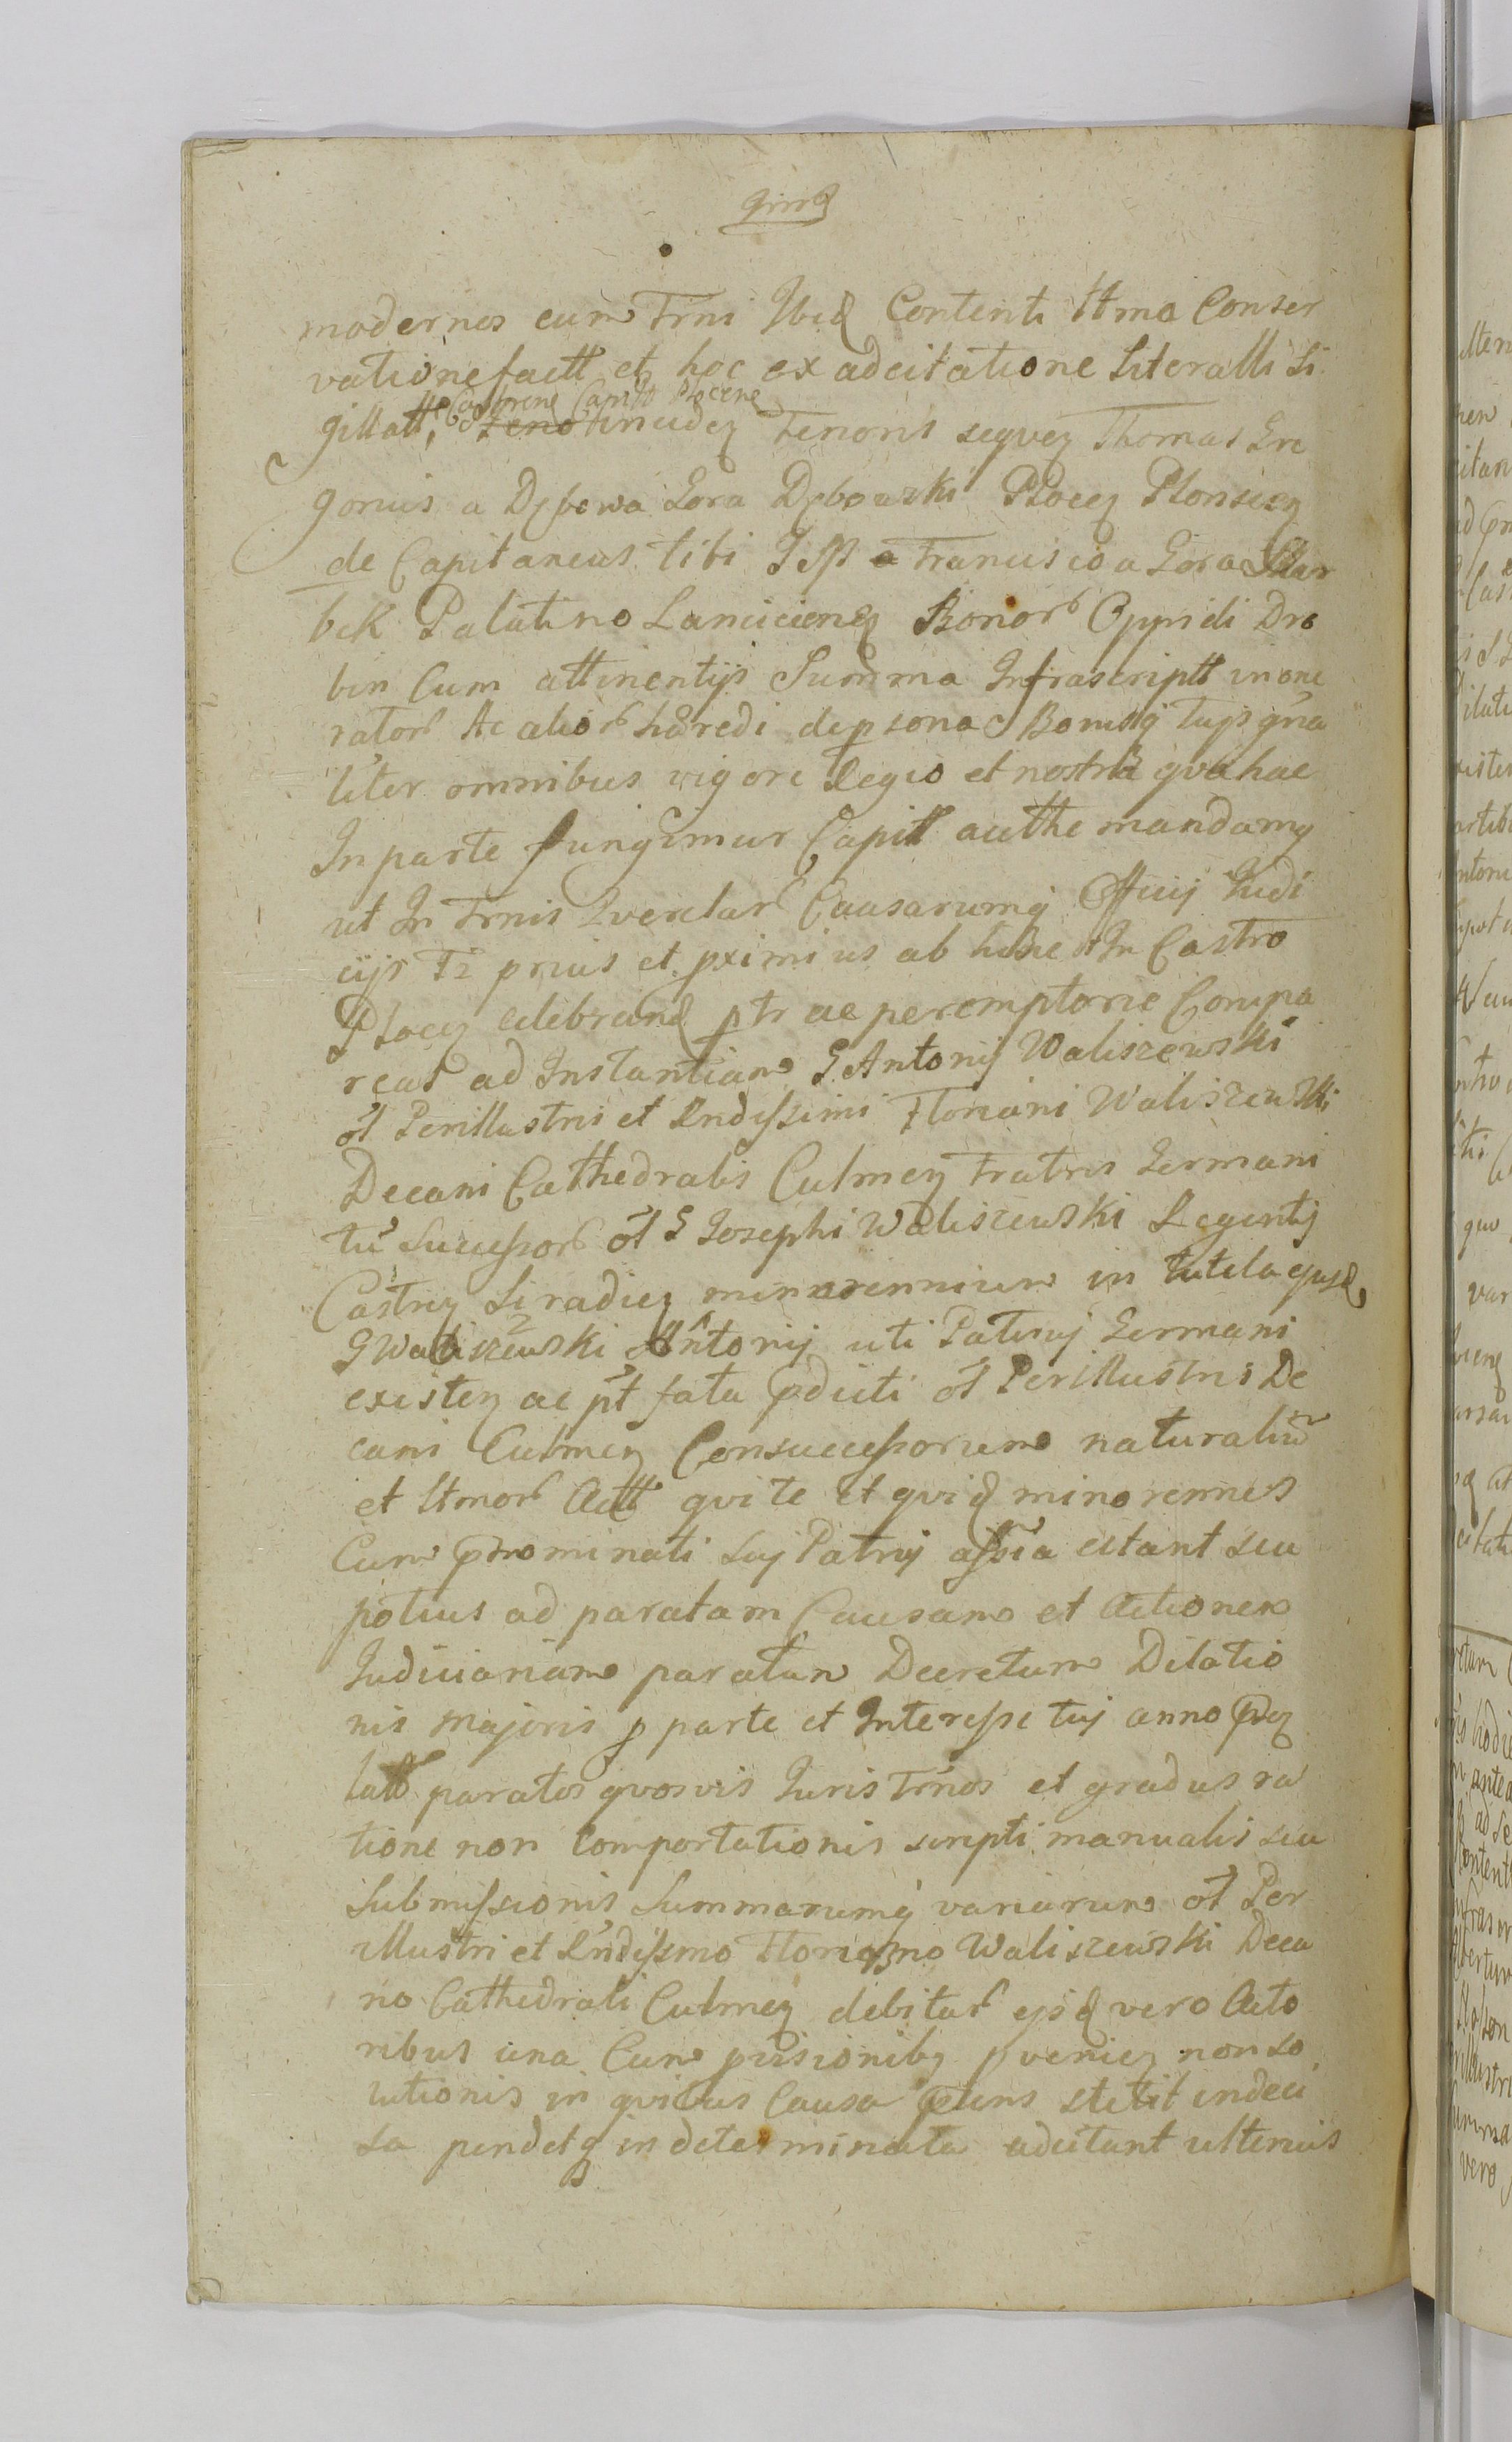 modernos cum Trni Ibid Contenti Ttma Conser
vatione factt et hoc ex adcitatione Literalli Si
gillatt, Castrene Capitt Plocene incudez Tenoris seqvez Thomas Gre
gorius a Dębowa Gora Dębowski Plocez Plonscez
de Capitaneus tibi Francisco a Gora Skar
bek Palatino Lancicienz Bonor Oppidi Dro
bin Cum attinentijs Summa Infrascriptt in one
rator Ac alior hæredi de psona Bonisq tuis gna
liter omnibus vigore Regio et nostra qva hac
In parte fungimur Capitt autthe mandamq
ut In Trnis Qverelar Causarumq Officij Iudi
cijs Tr prius et pximius ab hinc In Castro
Plocez celebrand ptr ac peremptorie Compa
reas ad Instantiam G Antonij Waliszewski
ol Perillustris et Rndissimi Floriani Waliszewski
Decani Cathedralis Culmez Fratris Germani
tu Successor ol G Josephi Waliszewski Regentij
Castrez Siradiez minorennium in tutela ejusd
G Waliszewski Antonij uti Patruj Germani
existez ac pt fata pdicti ol Perillustris De
cani Culmez Consuccessorum naturaliu
et Ttmor Actt qvi te et qvid minorennes
Cum pnominati Suj Patruj assia citant seu
potius ad paratam Causam et Actionem
Iudiciariam paratum Decretum Dilatio
nis Majoris p parte et Interesse tuj anno
latt paratos qvosvis Iuris Trnos et gradus ra
tione non Comportationis scripti manualis seu
Submissionis Summarumq variarum ol Per
illustri et Rndissmo Floriano Waliszewski Deca
no Cathedrali Culmez debitar ejsd vero Acto
ribus una Cum pvisionibq pveniez non so
lutionis in qvibus Causa ptens stetit indeci
sa pendetq indeterminata adcitant ulterius